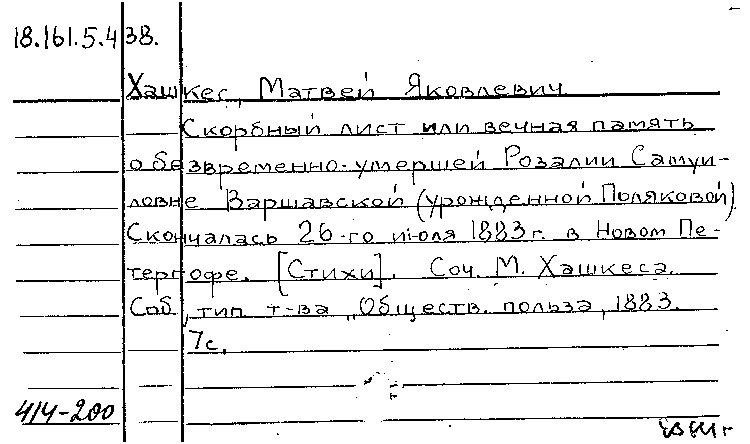 18.161.5.438.
Хашкес, Матвей Яковлевич.
Скорбный лист или вечная память
о безвременно-умершей Розалии Самуи-
ловне Варшавской (урожденной Поляковой)
Скончалась 26-го июля 1883 г. в Новом Пе-
тергофе. [Стихи]. Соч. М. Хашкеса.
Спб, тип. т-ва "Обществ. польза, 1883.
7с.
414-200